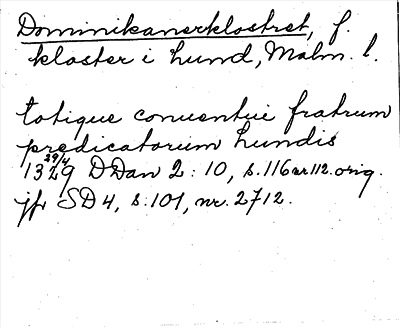 Dominikanerklostret, f.
kloster i Lund, Malm. l.
totique conuentui fratrum
predicatorum Lundis
1329 29/4 DDan 2:10, s. 116 nr 112. orig.
jfr SD 4, s. 101, nr. 2712.